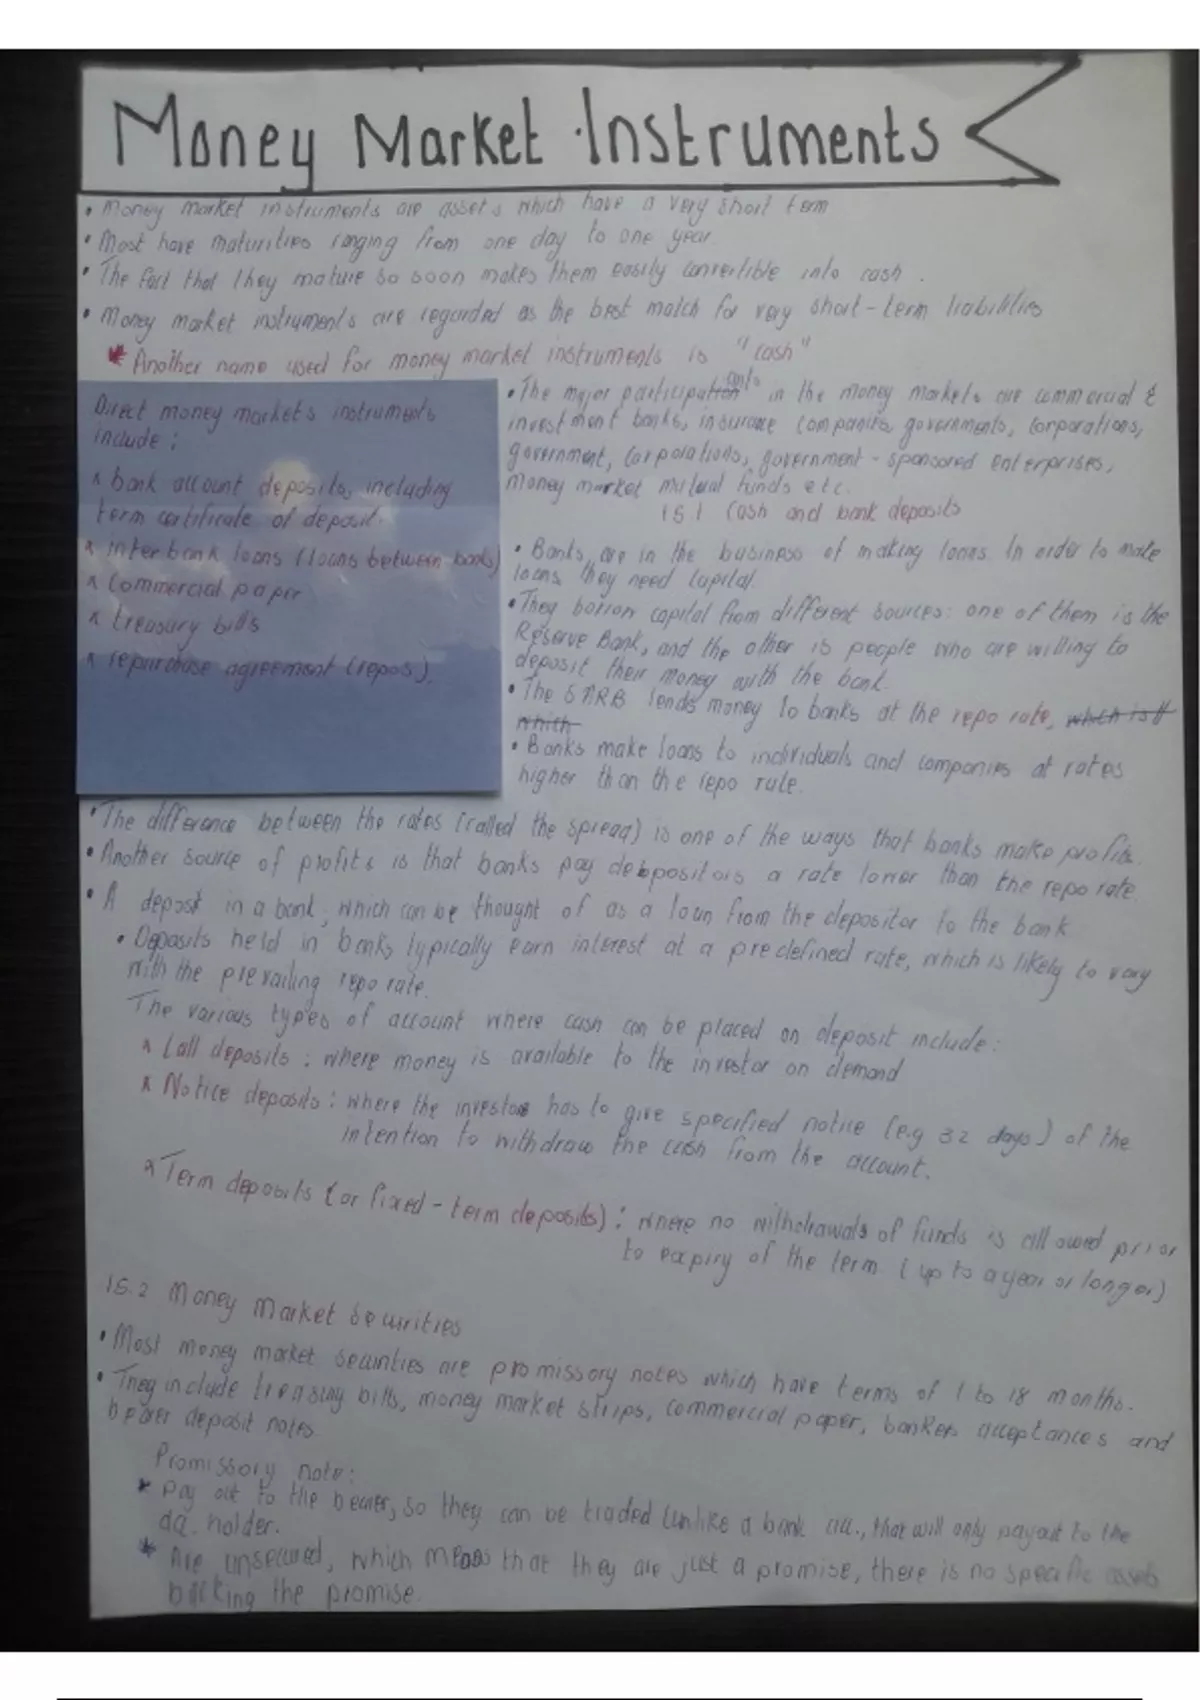 Money Market Instruments
• Money market instruments are assets which have a very short term
• Most have maturities ranging from one day to one year.
• The fact that they mature so soon makes them easily convertible into cash.
• Money market instruments are regarded as the best match for very short-term liabilities
* Another name used for money market instruments is "cash"
Direct money markets instruments
include:
x bank account deposits, including
term certificate of deposit.
x interbank loans (loans between banks)
x Commercial paper
x treasury bills
x repurchase agreement (repos).
• The major participants in the money markets are commercial &
investment banks, insurance companies, governments, corporations,
government, corporations, government-sponsored enterprises,
money market mutual funds etc.
15.1 Cash and bank deposits
• Banks, are in the business of making loans. In order to make
loans they need capital.
• They borrow capital from different sources: one of them is the
Reserve Bank, and the other is people who are willing to
deposit their money with the bank.
• The SARB lends money to banks at the repo rate, which is
which
• Banks make loans to individuals and companies at rates
higher than the repo rate.
• The difference between the rates (called the spread) is one of the ways that banks make profits.
• Another source of profits is that banks pay depositors a rate lower than the repo rate.
• A deposit in a bank, which can be thought of as a loan from the depositor to the bank
• Deposits held in banks typically earn interest at a predefined rate, which is likely to vary
with the prevailing repo rate.
The various types of account where cash can be placed on deposit include:
x Call deposits: where money is available to the investor on demand
x Notice deposits: where the investor has to give specified notice (e.g 32 days) of the
intention to withdraw the cash from the account.
x Term deposits (or fixed-term deposits): where no withdrawals of funds is allowed prior
to expiry of the term (up to a year or longer)
15.2 Money Market Securities
• Most money market securities are promissory notes which have terms of 1 to 18 months.
• They include treasury bills, money market strips, commercial paper, bankers acceptances and
bearer deposit notes.
Promissory note:
* Pay out to the bearer, so they can be traded (unlike a bank acc., that will only payout to the
holder.
* Are unsecured, which means that they are just a promise, there is no specific assets
backing the promise.